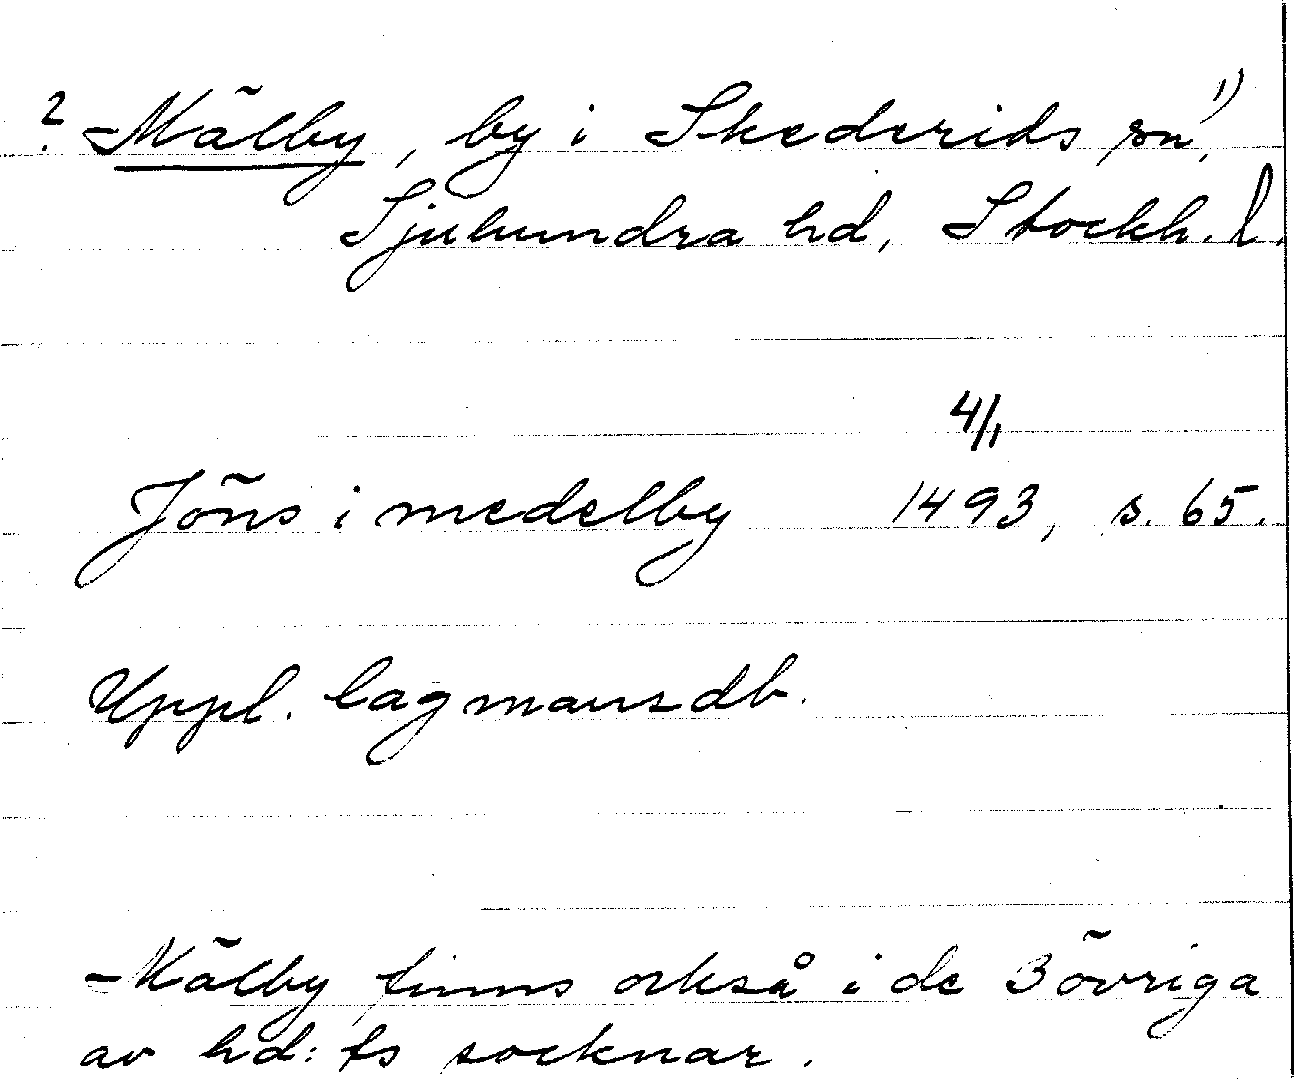 ? Mälby, by i Skederids sn, 1)
Sjuhundra hd, Stockh. l.
4/1
Jöns i medelby 1493, s. 65.
Uppl. lagmansdb.
Mälby finns också i de 3 övriga
av hd:ts socknar.